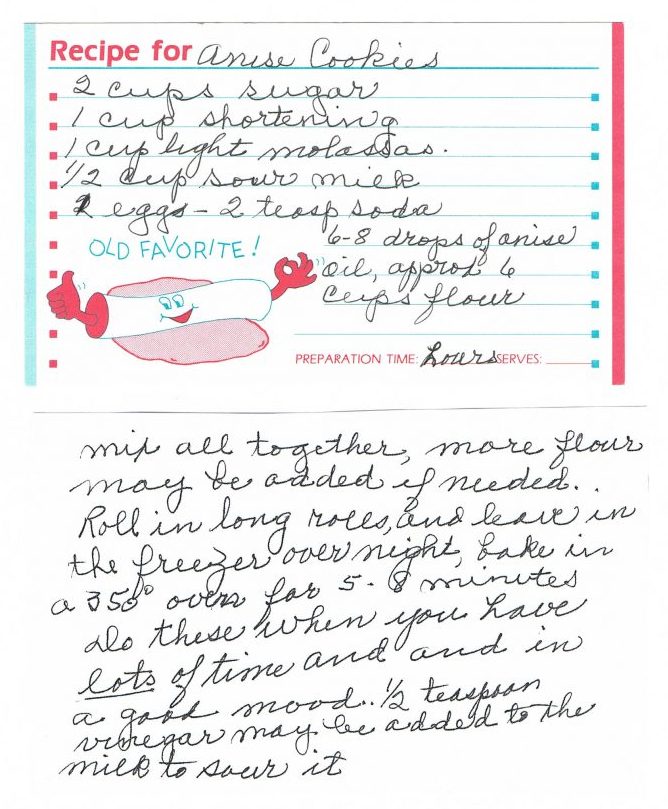 Recipe for Anise Cookies
2 cups sugar
1 cup shortening
1 cup light molassas.
1/2 cup sour milk
2 eggs - 2 teasp soda
OLD FAVORITE!
6-8 drops of anise
oil, approx 6
cups flour
PREPARATION TIME: hours SERVES:
mix all together, more flour
may be added if needed..
Roll in long rolls, and leave in
the freezer over night, bake in
a 350° oven for 5-8 minutes
Do these when you have
lots of time and and in
a good mood.. 1/2 teaspoon
vinegar may be added to the
milk to sour it